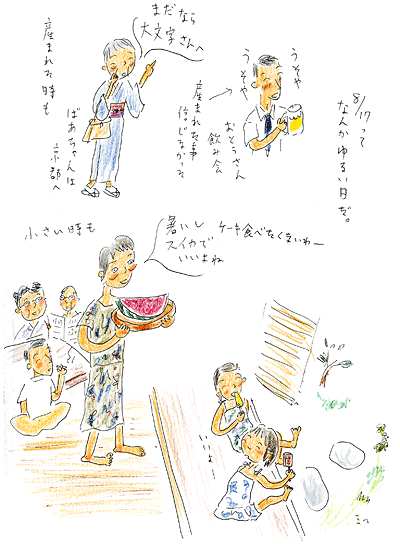 8/17って
なんかゆるい日だ。
うそや
うそや
おとうさん
飲み会
産まれた事
信じなかった
まだなら
大文字さんへ
産まれた時も
ばあちゃんは
京都へ
小さい時も
暑いし
スイカで
いいよね
ケーキ食べたくないわー
いいよー